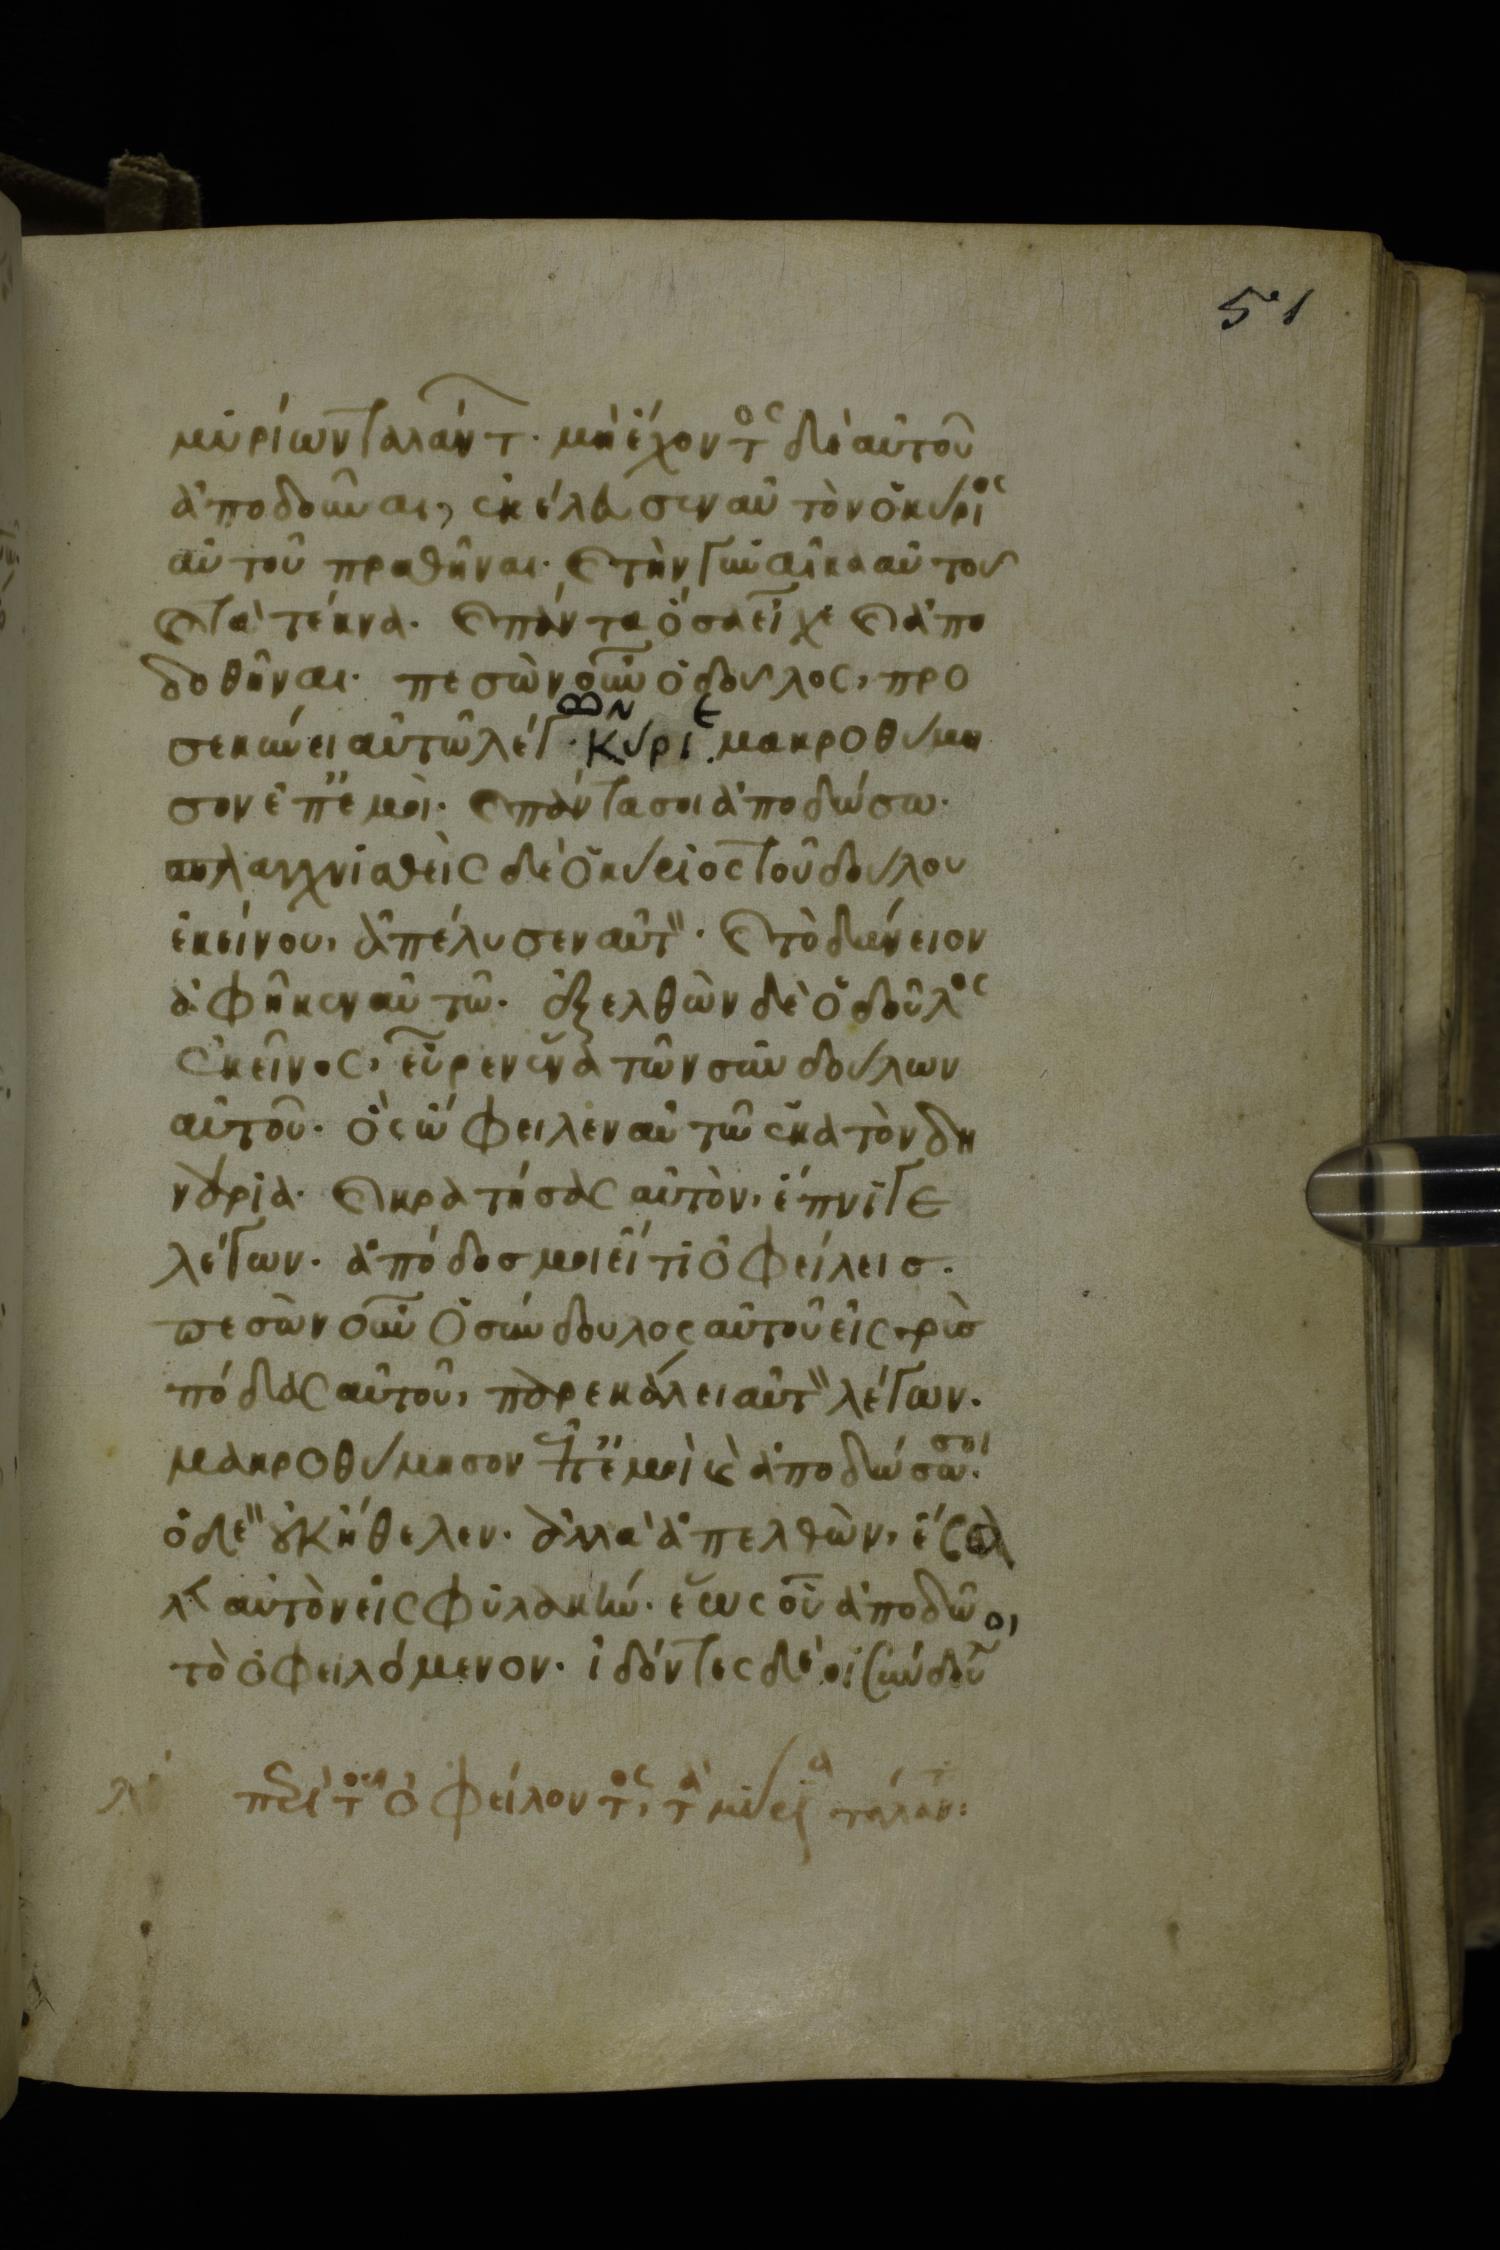 51
μυρίων ταλάντ. μὴ ἔχοντος δὲ αὐτοῦ
ἀποδοῦναι, ἐκέλευσεν αὐτὸν ὁ κύριος
αὐτοῦ πραθῆναι. καὶ τὴν γυναῖκα αὐτοῦ
καὶ τὰ τέκνα. καὶ πάντα ὅσα εἶχε καὶ ἀπο
δοθῆναι. πεσὼν οὖν ὁ δοῦλος, προ
σεκύνει αὐτῶ λέγ. Κύριε. μακροθύμη
σον ἐπ ἐμοὶ. καὶ πάντα σοι ἀποδώσω.
σπλαγχνισθεὶς δὲ ὁ κύριος τοῦ δούλου
ἐκείνου, ἀπέλυσεν αὐτ. καὶ τὸ δάνειον
ἀφῆκεν αὐτῶ. ἐξελθὼν δὲ ὁ δοῦλος
ἐκεῖνος, εὗρεν ἕνα τῶν συνδούλων
αὐτοῦ. ὃς ὤφειλεν αὐτῶ ἑκατὸν δη
νάρια. καὶ κρατήσας αὐτὸν, ἔπνιγε
λέγων. ἀπόδος μοι εἴ τι ὀφείλεις.
πεσὼν οὖν ὁ σύνδουλος αὐτοῦ εἰς τοὺς
πόδας αὐτοῦ, παρεκάλει αὐτ λέγων.
μακροθύμησον ἐπ ἐμοὶ κ ἀποδώσω σοι.
ὁ δὲ οὐκ ἤθελεν. ἀλλὰ ἀπελθὼν, ἔβαλ
λεν αὐτὸν εἰς φυλακήν. ἕως οὗ ἀποδῶ
τὸ ὀφειλόμενον. ἰδόντες δὲ οἱ σύνδου
περὶ τοῦ ὀφείλοντος, τὰ μύρια τάλαν: